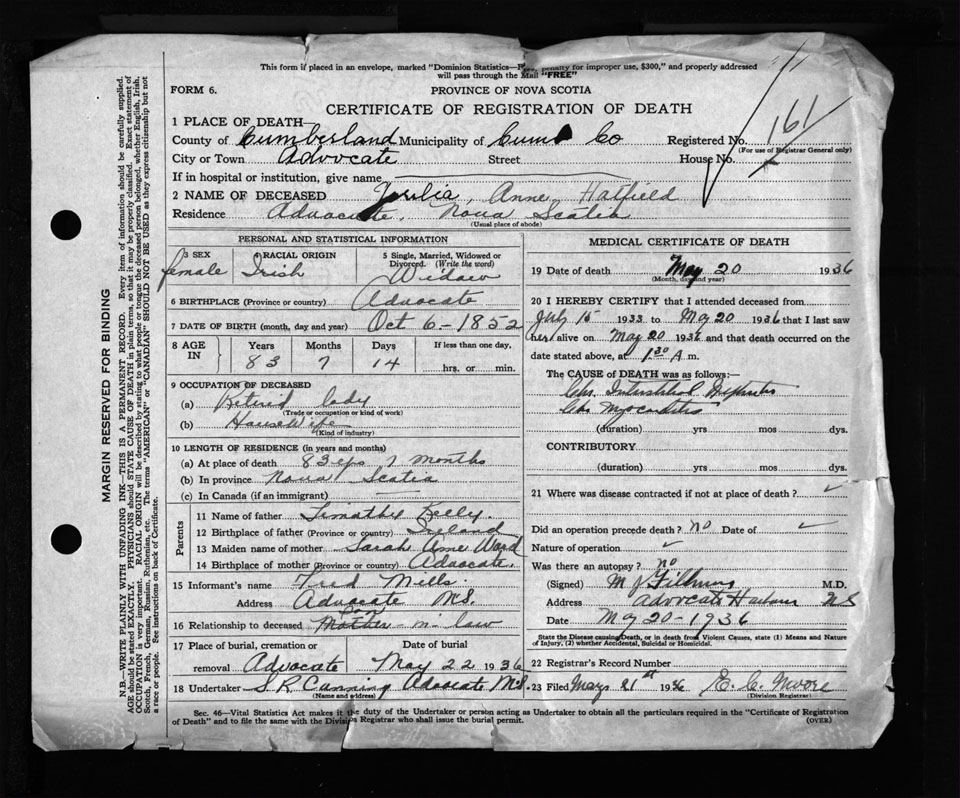 This form if placed in an envelope, marked "Dominion Statistics—Free, penalty for improper use, $300," and properly addressed
will pass through the Mail "FREE"
FORM 6.
PROVINCE OF NOVA SCOTIA
CERTIFICATE OF REGISTRATION OF DEATH
1 PLACE OF DEATH—
County of Cumberland Municipality of Cum Co Registered No. 161
(For use of Registrar General only)
City or Town Advocate Street House No.
If in hospital or institution, give name
2 NAME OF DECEASED Anne Hatfield
Residence Advocate, Nova Scotia
(Usual place of abode)
PERSONAL AND STATISTICAL INFORMATION
3 SEX RACIAL ORIGIN 5 Single, Married, Widowed or Divorced. (Write the word)
female Irish Widow
6 BIRTHPLACE (Province or country) Advocate
7 DATE OF BIRTH (month, day and year) Oct 6 - 1852
8 AGE IN Years Months Days If less than one day,
83 7 14 hrs. or min.
9 OCCUPATION OF DECEASED
(a) Retired lady
(Trade or occupation or kind of work)
(b) Housewife
(Kind of industry)
10 LENGTH OF RESIDENCE (in years and months)
(a) At place of death 83 yrs 7 months
(b) In province Nova Scotia
(c) In Canada (if an immigrant) —
Parents
11 Name of father Timothy Kelly
12 Birthplace of father (Province or country) Ireland
13 Maiden name of mother Sarah Anne Ward
14 Birthplace of mother (Province or country) Advocate.
15 Informant's name Fred Mills
Address Advocate N.S.
Son
16 Relationship to deceased Mother - in law
17 Place of burial, cremation or removal Date of burial
Advocate May 22 1936
18 Undertaker S R Canning Advocate N.S.
(Name and address)
MEDICAL CERTIFICATE OF DEATH
19 Date of death May 20 1936
(Month, day and year)
20 I HEREBY CERTIFY that I attended deceased from
July 15 1933 to May 20 1936 that I last saw
her alive on May 20 1936 and that death occurred on the
date stated above, at 1 30 A m.
The CAUSE OF DEATH was as follows:—
Chr. Interstitial Nephritis
Chr Myocarditis
(duration) yrs mos dys.
CONTRIBUTORY
(duration) yrs mos dys.
21 Where was disease contracted if not at place of death?
Did an operation precede death? no Date of
Nature of operation
Was there an autopsy? no
(Signed) M.D.
Address Advocate Harbour N S
Date May 20 - 1936
State the Disease causing Death, or in death from Violent Causes, state (1) Means and Nature
of Injury, (2) whether Accidental, Suicidal or Homicidal.
22 Registrar's Record Number
23 Filed May 21st 1936 E. C. Moore
(Division Registrar)
Sec. 46—Vital Statistics Act makes it the duty of the Undertaker or person acting as Undertaker to obtain all the particulars required in the "Certificate of Registration
of Death" and to file the same with the Division Registrar who shall issue the burial permit. (OVER)
MARGIN RESERVED FOR BINDING
N.B.—WRITE PLAINLY WITH UNFADING INK—THIS IS A PERMANENT RECORD. Every item of information should be carefully supplied.
AGE should be stated EXACTLY. PHYSICIANS should STATE CAUSE OF DEATH in plain terms, so that it may be properly classified. Exact statement of
OCCUPATION is very important. RACIAL ORIGIN will be described by stating to what people or tongue the deceased person belonged, whether English, Irish,
Scotch, French, German, Russian, Ruthenian, etc. The terms "AMERICAN" or "CANADIAN" SHOULD NOT BE USED as they express citizenship but not
a race or people. See instructions on back of Certificate.